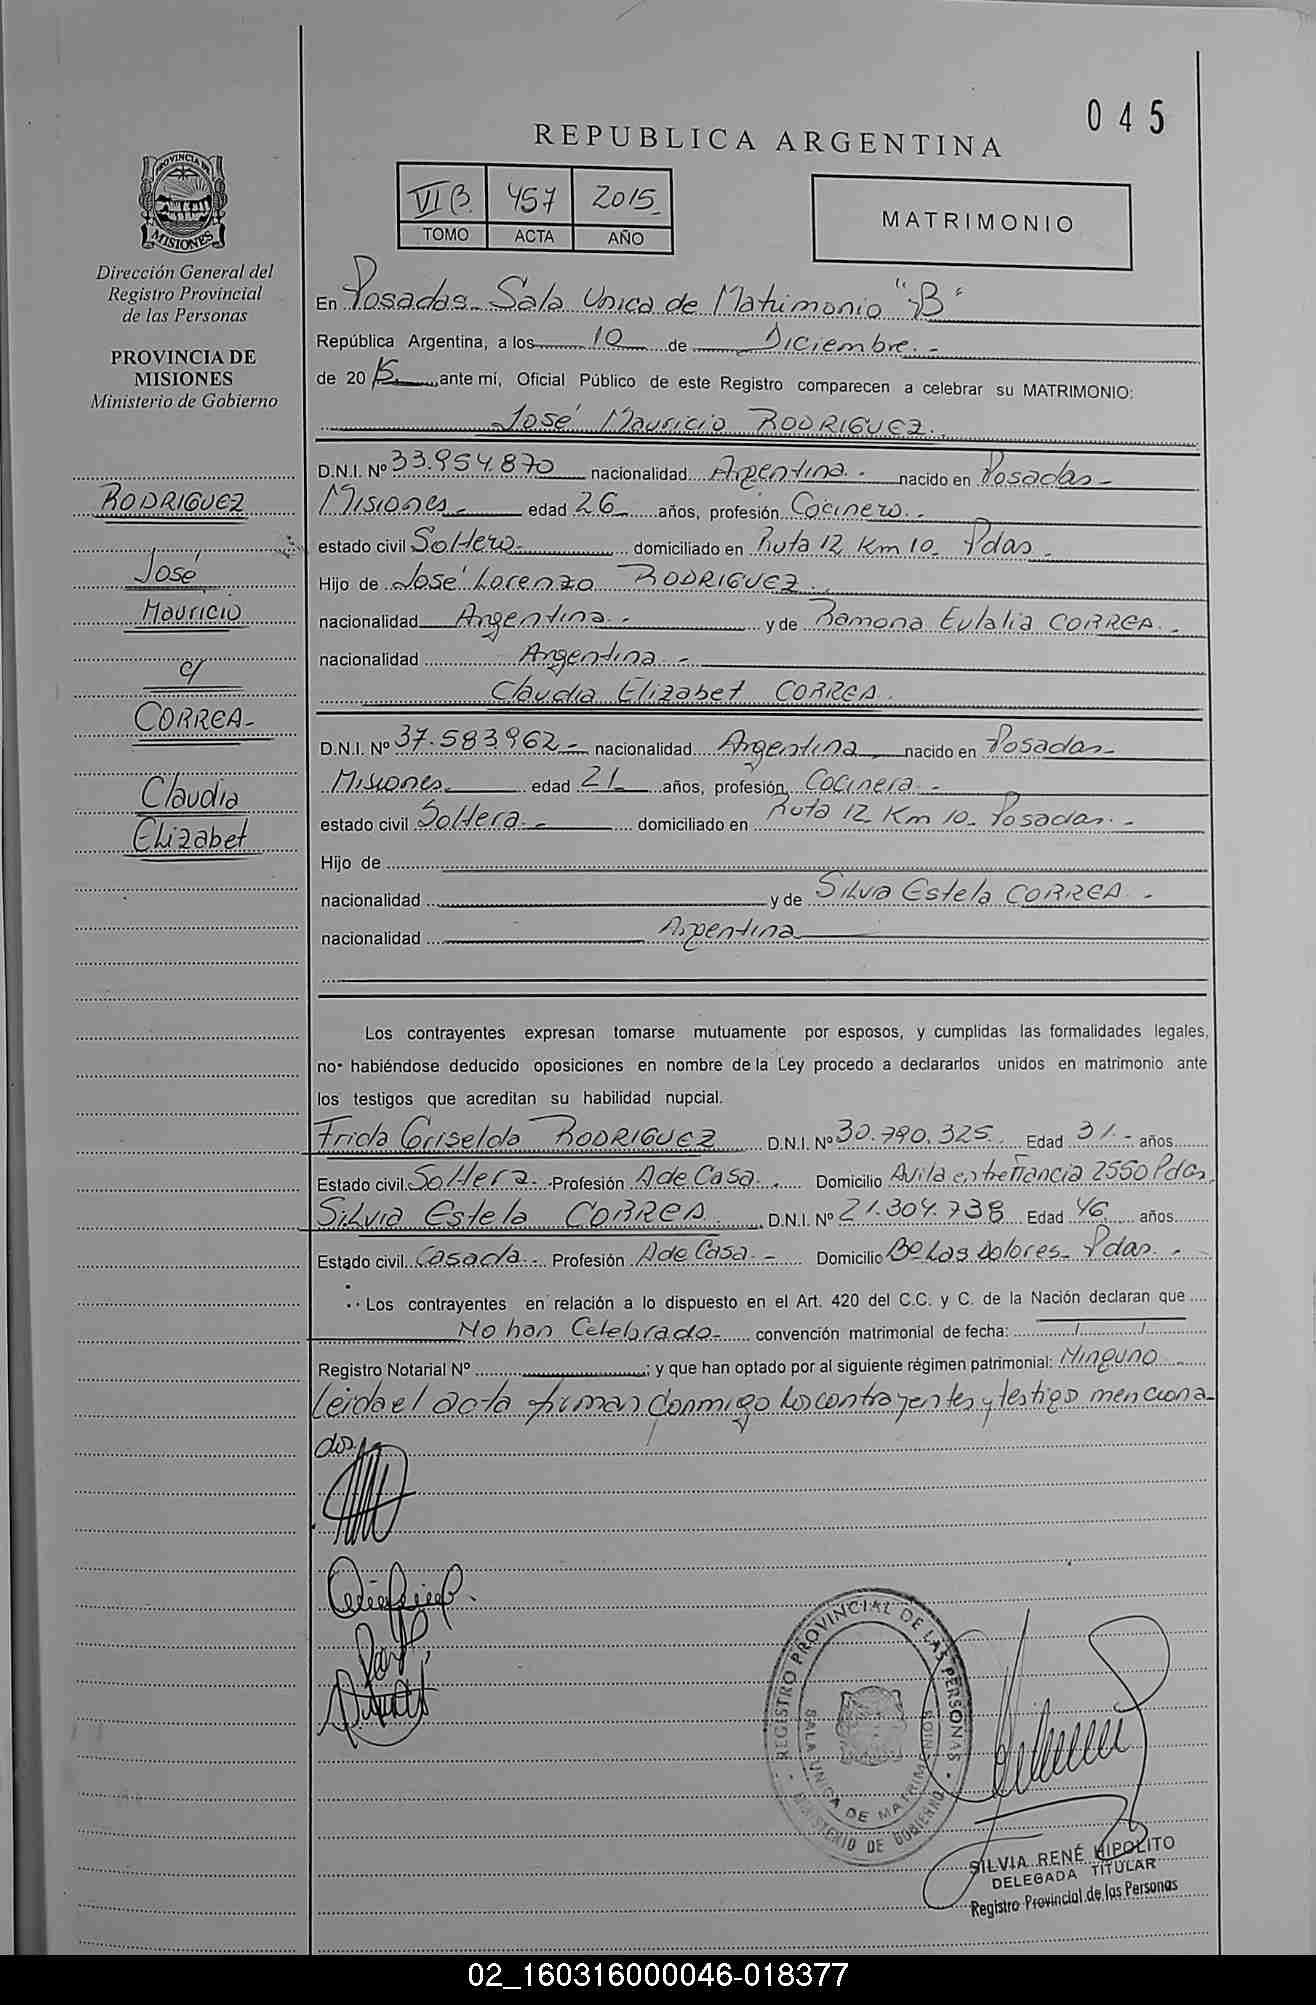 045
REPUBLICA ARGENTINA
VI B 457 2015
TOMO ACTA AÑO
MATRIMONIO
PROVINCIA DE
MISIONES
Dirección General del
Registro Provincial
de las Personas
PROVINCIA DE
MISIONES
Ministerio de Gobierno
RODRIGUEZ
José
Mauricio
c/
CORREA-
Claudia
Elizabet
En Posadas Sala Unica de Matrimonio "B"
República Argentina, a los 10 de Diciembre.-
de 2015 ,ante mí, Oficial Público de este Registro comparecen a celebrar su MATRIMONIO:
José Mauricio RODRIGUEZ.
D.N.I. Nº 33.954.870 nacionalidad Argentina.- nacido en Posadas-
Misiones- edad 26 años, profesión Cocinero.-
estado civil Soltero- domiciliado en Ruta 12 Km 10- Pdas.
Hijo de José Lorenzo RODRIGUEZ.
nacionalidad Argentina.- y de Ramona Eulalia CORREA.-
nacionalidad Argentina.-
Claudia Elizabet CORREA.
D.N.I. Nº 37.583.962- nacionalidad Argentina nacido en Posadas-
Misiones- edad 21 años, profesión Cocinera.-
estado civil Soltera.- domiciliado en Ruta 12 Km 10- Posadas.-
Hijo de
nacionalidad y de Silvia Estela CORREA.-
nacionalidad Argentina
Los contrayentes expresan tomarse mutuamente por esposos, y cumplidas las formalidades legales,
no habiéndose deducido oposiciones en nombre de la Ley procedo a declararlos unidos en matrimonio ante
los testigos que acreditan su habilidad nupcial.
Frida Griselda RODRIGUEZ D.N.I. Nº 30.790.325. Edad 31.- años
Estado civil Soltera.- Profesión A de Casa. Domicilio Avila entre Francia 2550 Pdas.
Silvia Estela CORREA D.N.I. Nº 21.304.738 Edad 46 años
Estado civil Casada.- Profesión A de Casa.- Domicilio Bº Los Dolores- Pdas.-
Los contrayentes en relación a lo dispuesto en el Art. 420 del C.C. y C. de la Nación declaran que
No han Celebrado- convención matrimonial de fecha: / /
Registro Notarial Nº ; y que han optado por al siguiente régimen patrimonial: Ninguno
Leida el acta firman conmigo los contrayentes y testigo menciona-
dos.
REGISTRO PROVINCIAL DE LAS PERSONAS
SALA UNICA DE MATRIMONIOS
MINISTERIO DE GOBIERNO
SILVIA RENÉ HIPOLITO
DELEGADA TITULAR
Registro Provincial de las Personas
02_160316000046-018377